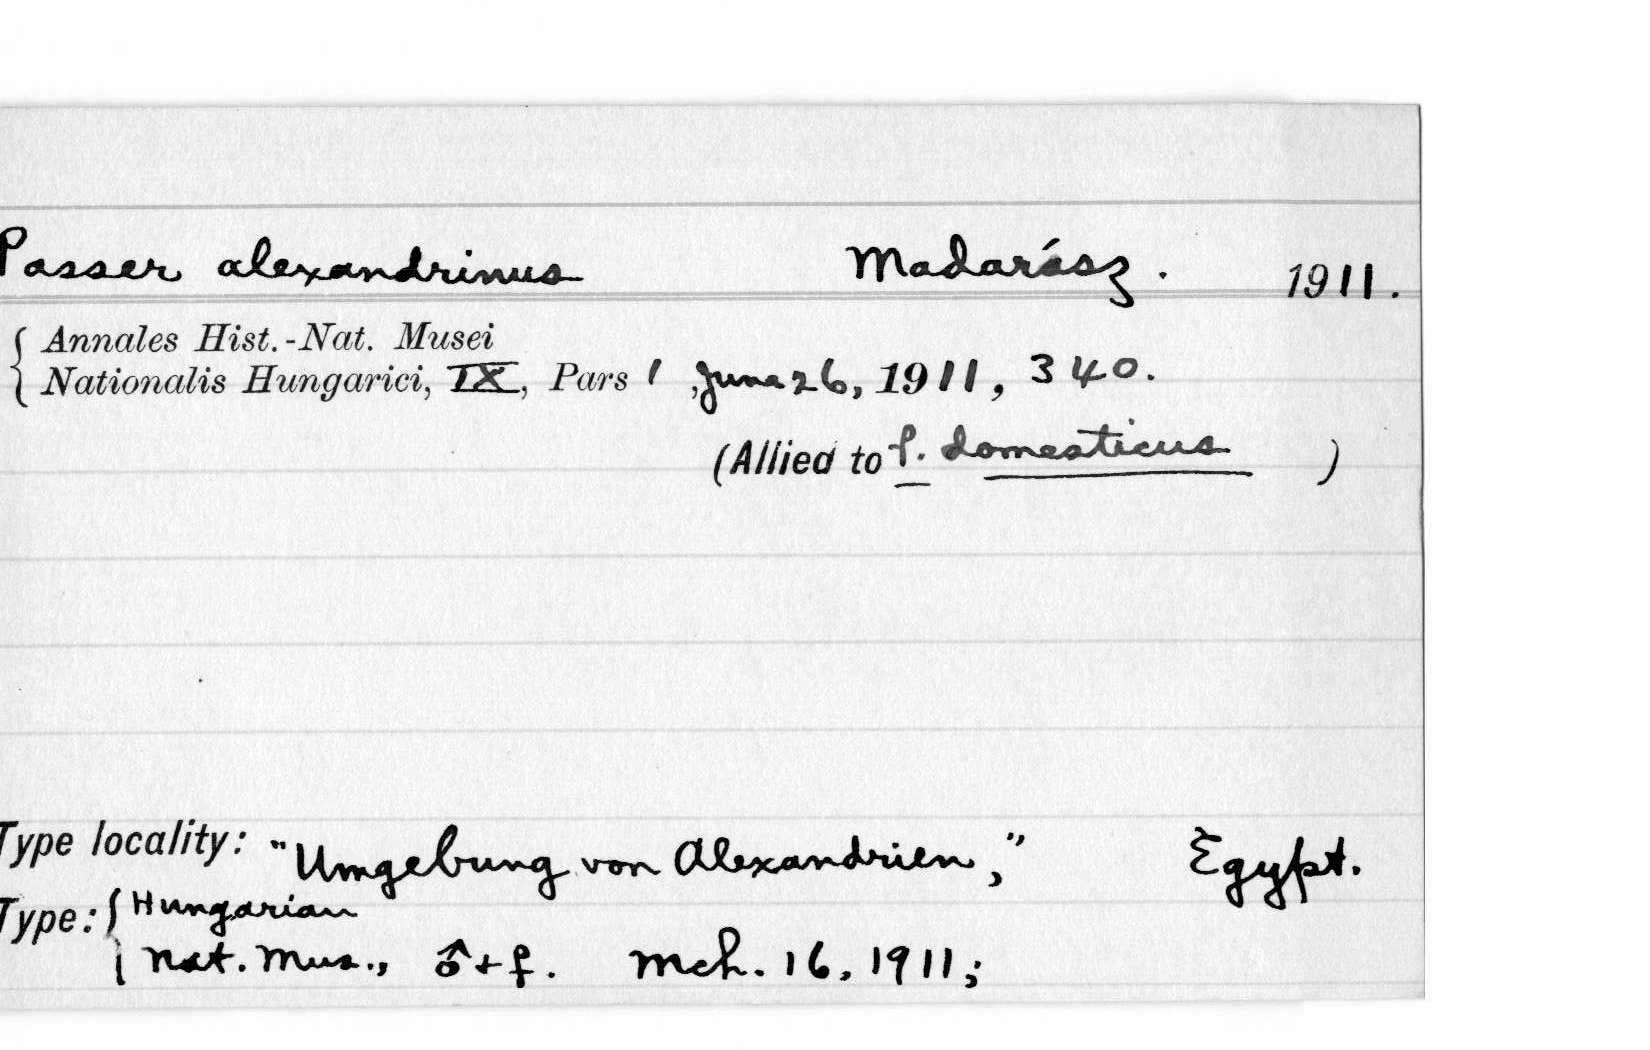 Passer alexandrinus Madarász. 1911.
{ Annales Hist.-Nat. Musei
Nationalis Hungarici, IX, Pars 1, June 26, 1911, 340.
(Allied to P. domesticus )
Type locality: "Umgebung von Alexandrien," Egypt.
Type: { Hungarian
Nat. Mus., ♂ + ♀. Mch. 16, 1911;